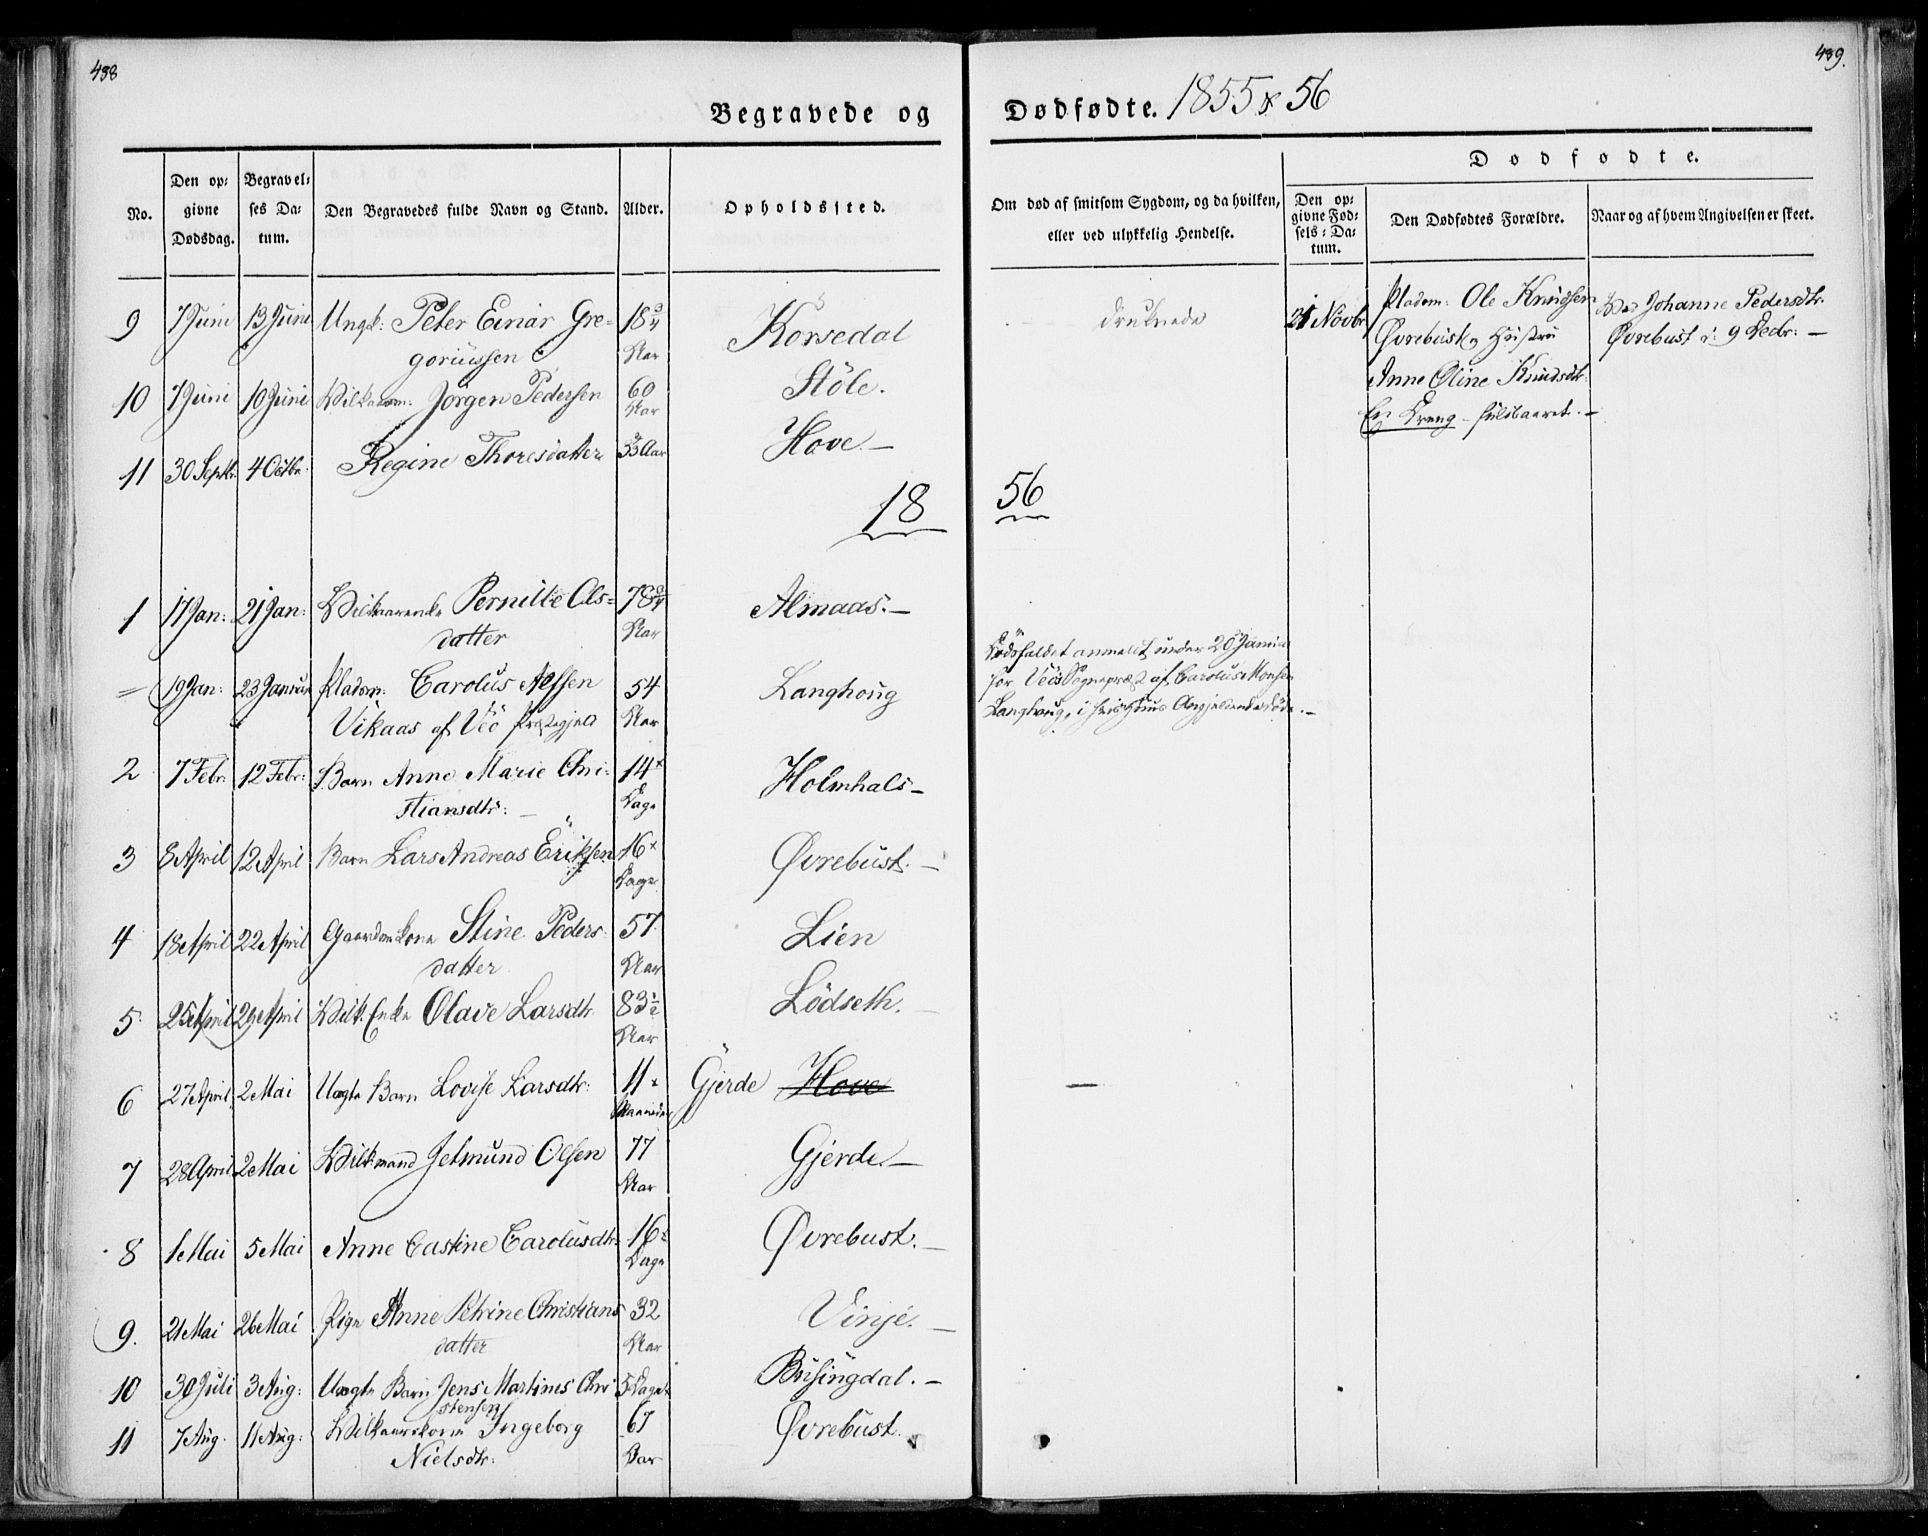 438
439.
Begravede og Dødfødte. 1855 & 56
No.
Den opgivne Dødsdag.
Begravelses Datum.
Den Begravedes fulde Navn og Stand.
Alder.
Opholdssted.
Om død af smitsom Sygdom, og da hvilken,
eller ved ulykkelig Hendelse.
Dødfødte.
Den opgivne Fødsels-Datum.
Den Dødfødtes Forældre.
Naar og af hvem Angivelsen er skeet.
9 7 Juni 13 Juni Ungk: Peter Einar Gre= 18 3/4 Korsedal druknede
goriussen Aar
10 7 Juni 10 Juni Jørgen Pedersen 60 Støle.
Aar
11 30 Septbr. 4 Octbr. Regine Thoresdatter Aar Hove. —
21 Novbr
Pladsm: Ole Knudsen
Øvrebust & Hustru
Anne Oline Knudsdtr:
En Dreng - fuldbaaret. —
Johanne Pedersdtr.
Øvrebust d: 9 Decbr: —
18 56
1 17 Jan: 21 Jan: Pernille Ols= 78 3/4 Almaas. —
datter Aar
= 19 Jan: 23 Januar Pladsm: Carolus 54 Langhoug
Vikaas af Veø Præstegjeld Aar
Dødsfaldet anmeldt under 20 Januar
for Veøs Sognepræst af Carolus Monsen
Langhoug, i hvis Huus Angjeldende døde. —
2 7 Febr: 12 Febr: Barn Anne Marie Chri- 14 Holmhals —
stiansdtr: — Dage
3 8 April 12 April Barn Lars Andreas Eriksen 16 Øvrebust. —
Dage
4 18 April 22 April Gaardmkone Stine Peders 57 Lien
datter Aar
5 25 April 29 April Enke Olave Larsdtr 83 1/2 Lødseth. —
Aar
6 27 April 2 Mai Uægte Barn Lovise Larsdtr: 11 Gjerde Hove —
Maaneder
7 28 April 2 Mai Jetmund Olsen 77 Gjerde. —
Aar
8 1 Mai 5 Mai Anne Castine Carolusdtr 16 Øvrebust. —
Dage
9. 21 Mai 26 Mai Pige Anne Petrine Christians 32 Vinje. —
datter Aar
10 30 Juli 3 Aug: Uægte Barn Jens Martinus Chri 5 Dage Brusingdal. —
stensen
11 7 Aug. 11 Aug: Ingeborg 67 Øvrebust.
Nielsdtr: Aar